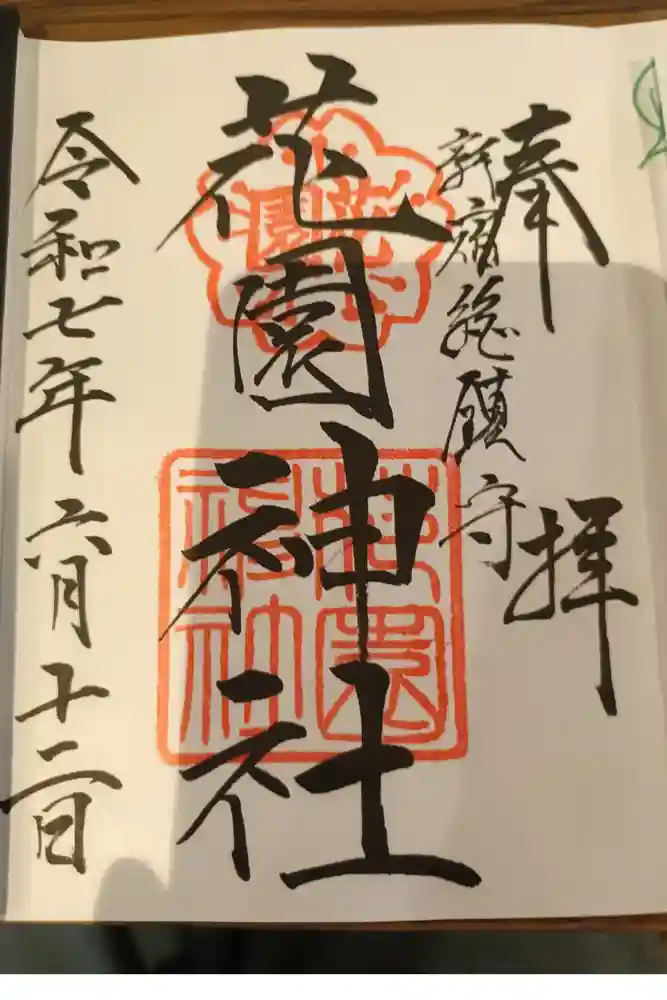 奉拝
新宿総鎮守
花園神社
花園
花園神社
令和七年六月十二日